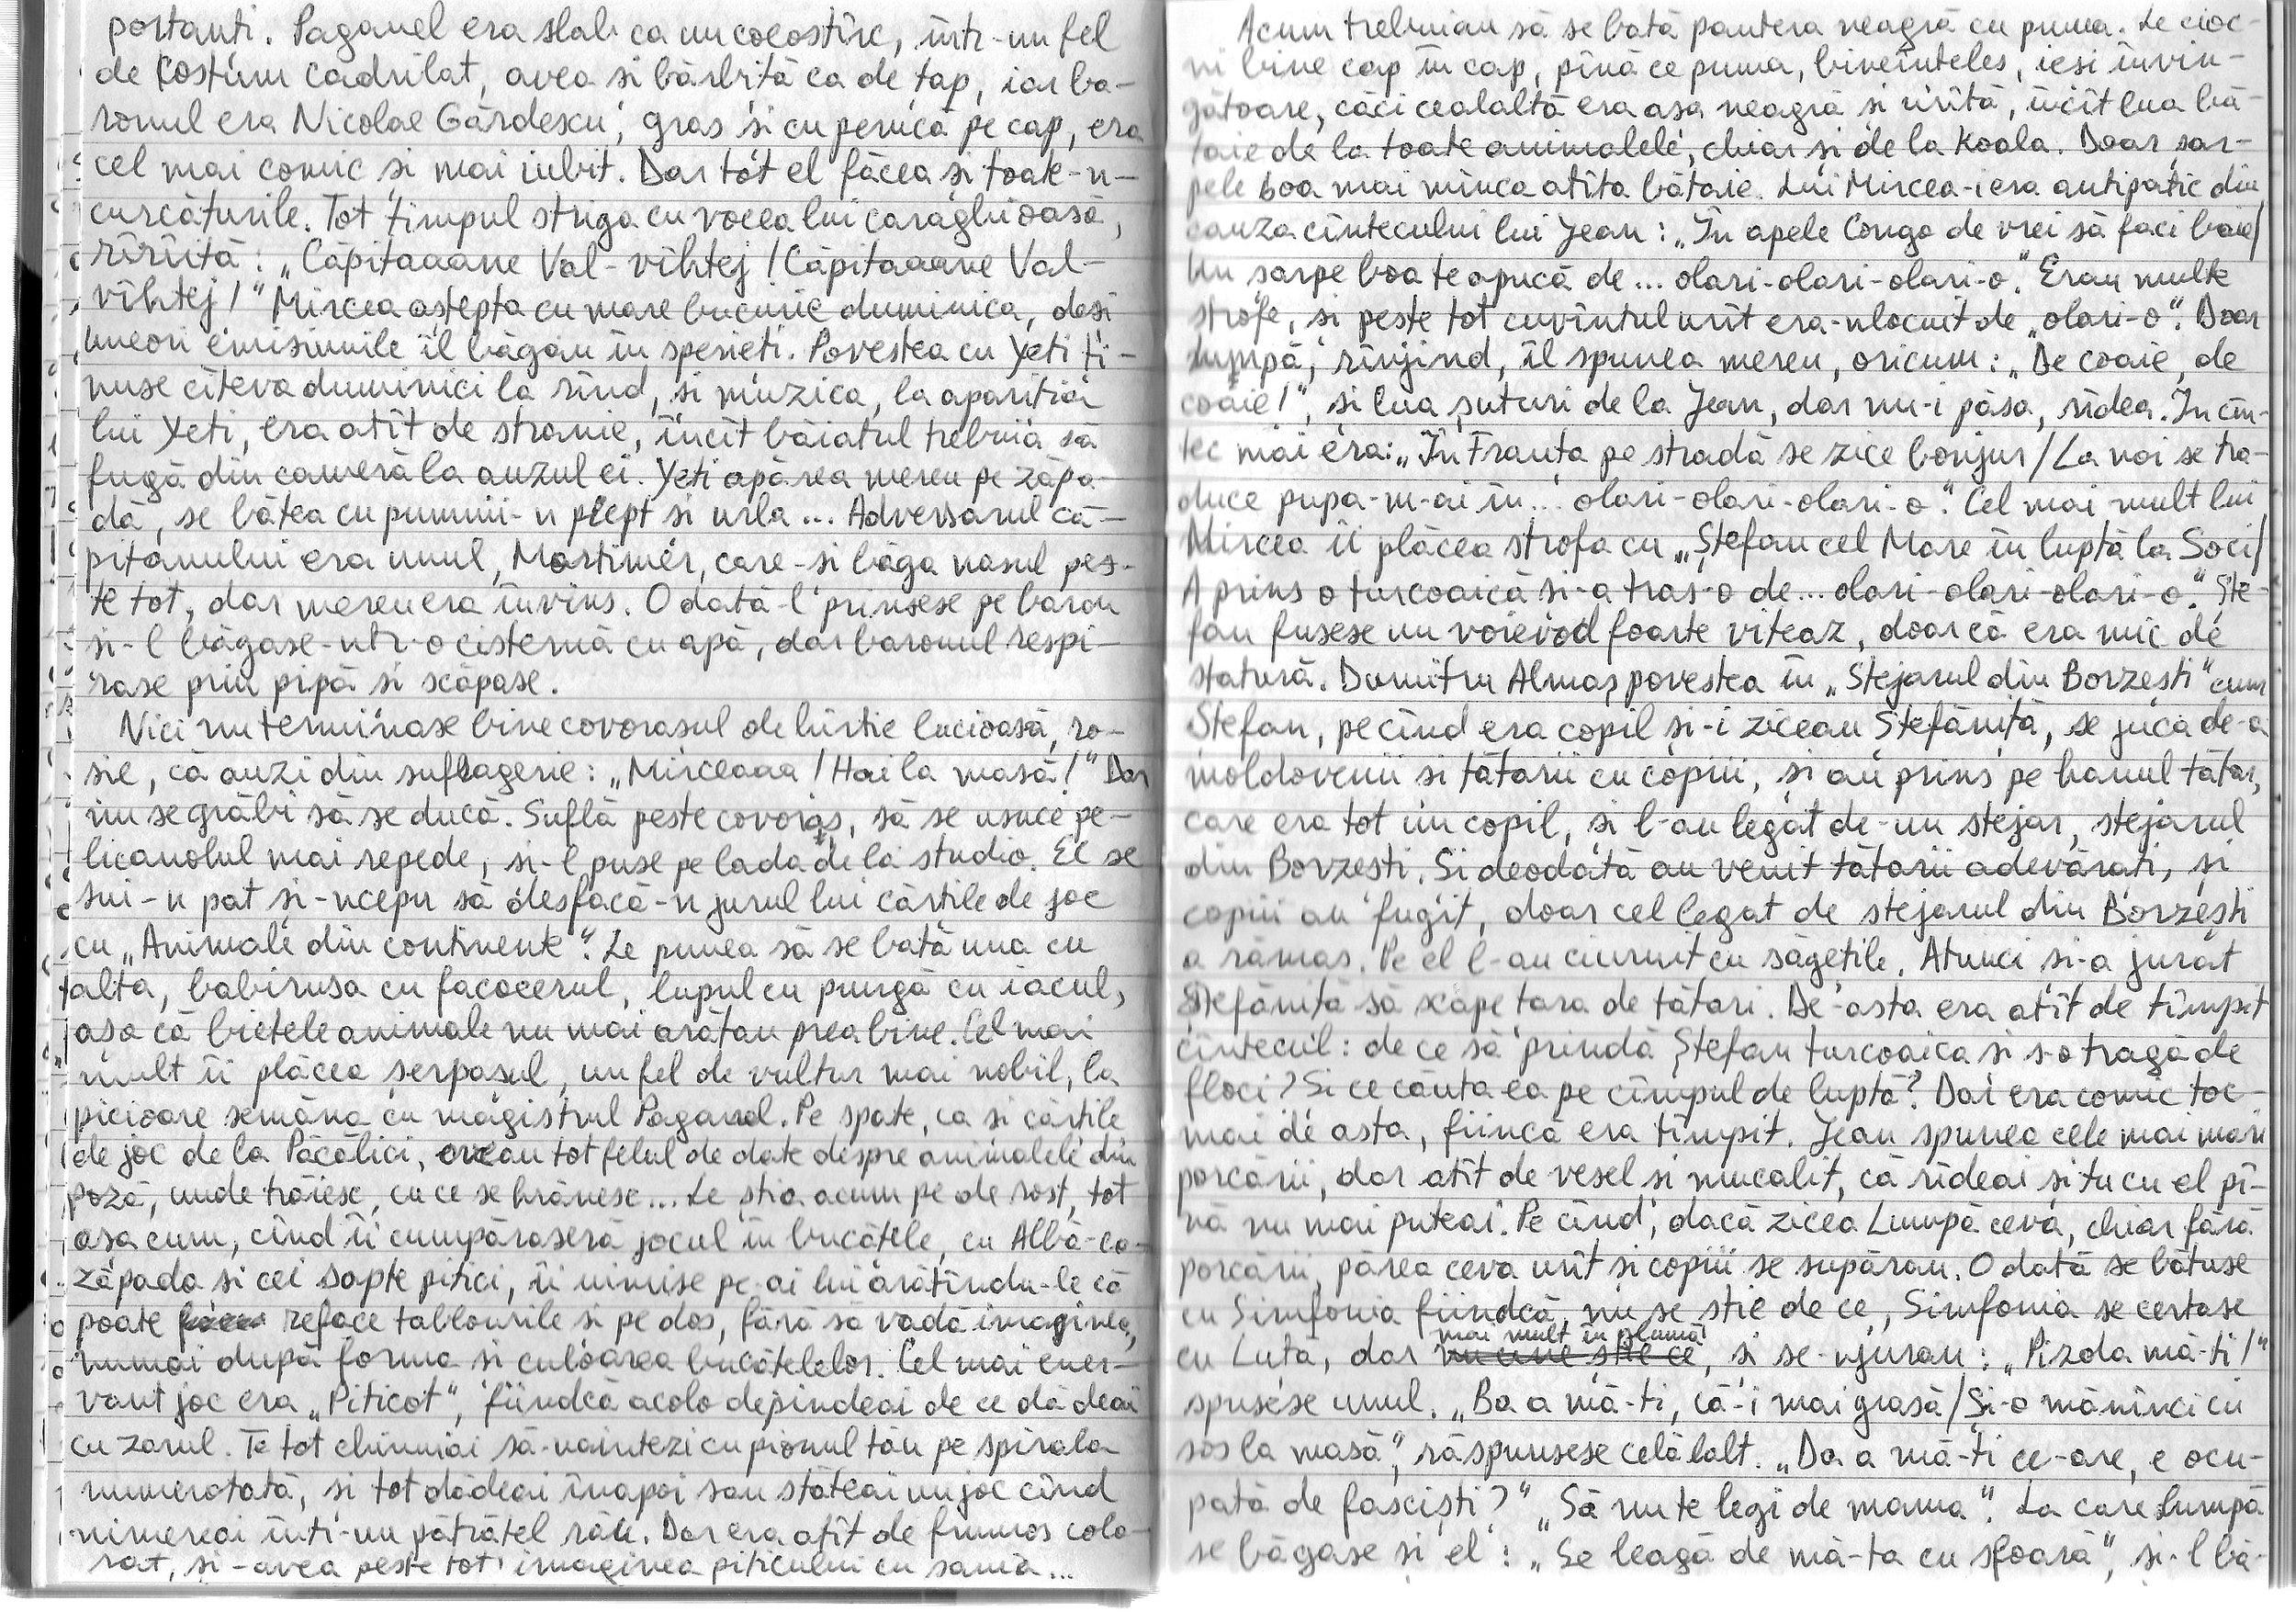 portanți. Paganel era slab ca un cocostîrc, într-un fel
de costum cadrilat, avea și bărbiță ca de țap, iar ba-
ronul era Nicolae Gărdescu, gras și cu perucă pe cap, era
cel mai comic și mai iubit. Dar tot el făcea și toate-n-
curcăturile. Tot timpul striga cu vocea lui caraghioasă,
rîrîită: „Căpitaaane Val-vîhtej! Căpitaaane Val-
vîhtej!" Mircea aștepta cu mare bucurie duminica, deși
uneori emisiunile îl băgau în sperieți. Povestea cu Yeti ți-
nuse cîteva duminici la rînd, și muzica, la apariția
lui Yeti, era atît de stranie, încît băiatul trebuia să
fugă din cameră la auzul ei. Yeti apărea mereu pe zăpa-
dă, se bătea cu pumnii-n piept și urla... Adversarul că-
pitanului era unul, Mortimer, care-și băga nasul pes-
te tot, dar mereu era învins. Odată-l prinsese pe baron
și-l băgase-ntr-o cisternă cu apă, dar baronul respi-
rase prin pipă și scăpase.
Nici nu terminase bine covorașul de hîrtie lucioasă, ro-
șie, că auzi din sufragerie: „Mirceaaa! Hai la masă!" Dar
nu se grăbi să se ducă. Suflă peste covoraș, să se usuce pe-
licanolul mai repede, și-l puse pe lada de la studio. El se
sui-n pat și-ncepu să desfacă-n jurul lui cărțile de joc
cu „Animale din continente". Le punea să se bată una cu
alta, babirusa cu facocerul, lupul cu pungă cu iacul,
așa că bietele animale nu mai arătau prea bine. Cel mai
mult îi plăcea șerparul, un fel de vultur mai nobil, la
picioare semăna cu magistrul Paganel. Pe spate, ca și cărțile
de joc de la Păcălici, aveau tot felul de date despre animalele din
poză, unde trăiesc, cu ce se hrănesc... Le știa acum pe de rost, tot
așa cum, cînd îi cumpăraseră jocul în bucățele, cu Albă-ca-
zăpada și cei șapte pitici, îi uimise pe ai lui arătîndu-le că
poate reface tablourile și pe dos, fără să vadă imaginea,
numai după forma și culoarea bucățelelor. Cel mai ener-
vant joc era „Piticot", fiindcă acolo depindeai de ce dădeai
cu zarul. Te tot chinuiai să-naintezi cu pionul tău pe spirala
numerotată, și tot dădeai înapoi sau stăteai un joc cînd
nimereai într-un pătrățel rău. Dar era atît de frumos colo-
rat, și-avea peste tot imaginea piticului cu sania...
Acum trebuiau să se bată pantera neagră cu puma. Le cioc-
ni bine cap în cap, pînă ce puma, bineînțeles, ieși învin-
gătoare, căci cealaltă era așa neagră și urîtă, încît lua bă-
taie de la toate animalele, chiar și de la koala. Doar șar-
pele boa mai mînca atîta bătaie. Lui Mircea-i era antipatic din
cauza cîntecului lui Jean: „În apele Congo de vrei să faci baie/
Un șarpe boa te apucă de... olari-olari-olari-o". Erau multe
strofe, și peste tot cuvîntul urît era-nlocuit de „olari-o". Doar
Lumpă, rînjind, îl spunea mereu, oricum: „De coaie, de
coaie!", și lua șuturi de la Jean, dar nu-i păsa, rîdea. În cîn-
tec mai era: „În Franța pe stradă se zice bonjur/La noi se tra-
duce pupa-m-ai în... olari-olari-olari-o". Cel mai mult lui
Mircea îi plăcea strofa cu „Ștefan cel Mare în luptă la Soci/
A prins o turcoaică și-a tras-o de... olari-olari-olari-o". Ște-
fan fusese un voievod foarte viteaz, doar că era mic de
statură. Dumitru Almaș povestea în „Stejarul din Borzești" cum
Ștefan, pe cînd era copil și-i ziceau Ștefăniță, se juca de-a
moldovenii și tătarii cu copiii, și au prins pe hanul tătar,
care era tot un copil, și l-au legat de-un stejar, stejarul
din Borzești. Și deodată au venit tătarii adevărați, și
copiii au fugit, doar cel legat de stejarul din Borzești
a rămas. Pe el l-au ciuruit cu săgețile. Atunci și-a jurat
Ștefăniță să scape țara de tătari. De-asta era atît de tîmpit
cîntecul: de ce să prindă Ștefan turcoaica și s-o tragă de
floci? Și ce căuta ea pe cîmpul de luptă? Dar era comic toc-
mai de asta, fiincă era tîmpit. Jean spunea cele mai mari
porcării, dar atît de vesel și mucalit, că rîdeai și tu cu el pî-
nă nu mai puteai. Pe cînd, dacă zicea Lumpă ceva, chiar fără
porcării, părea ceva urît și copiii se supărau. Odată se bătuse
cu Simfonia fiindcă, nu se știe de ce, Simfonia se certase
mai mult în glumă
cu Luța, dar nu cine știe ce, și se-njurau: „Pizda mă-ti!"
spusese unul. „Ba a mă-ti, că-i mai grasă/Și-o mănînci cu
sos la masă", răspunsese celălalt. „Da a mă-ti ce-are, e ocu-
pată de fasciști?" „Să nu te legi de mama". La care Lumpă
se băgase și el: „Se leagă de mă-ta cu sfoară", și-l bă-